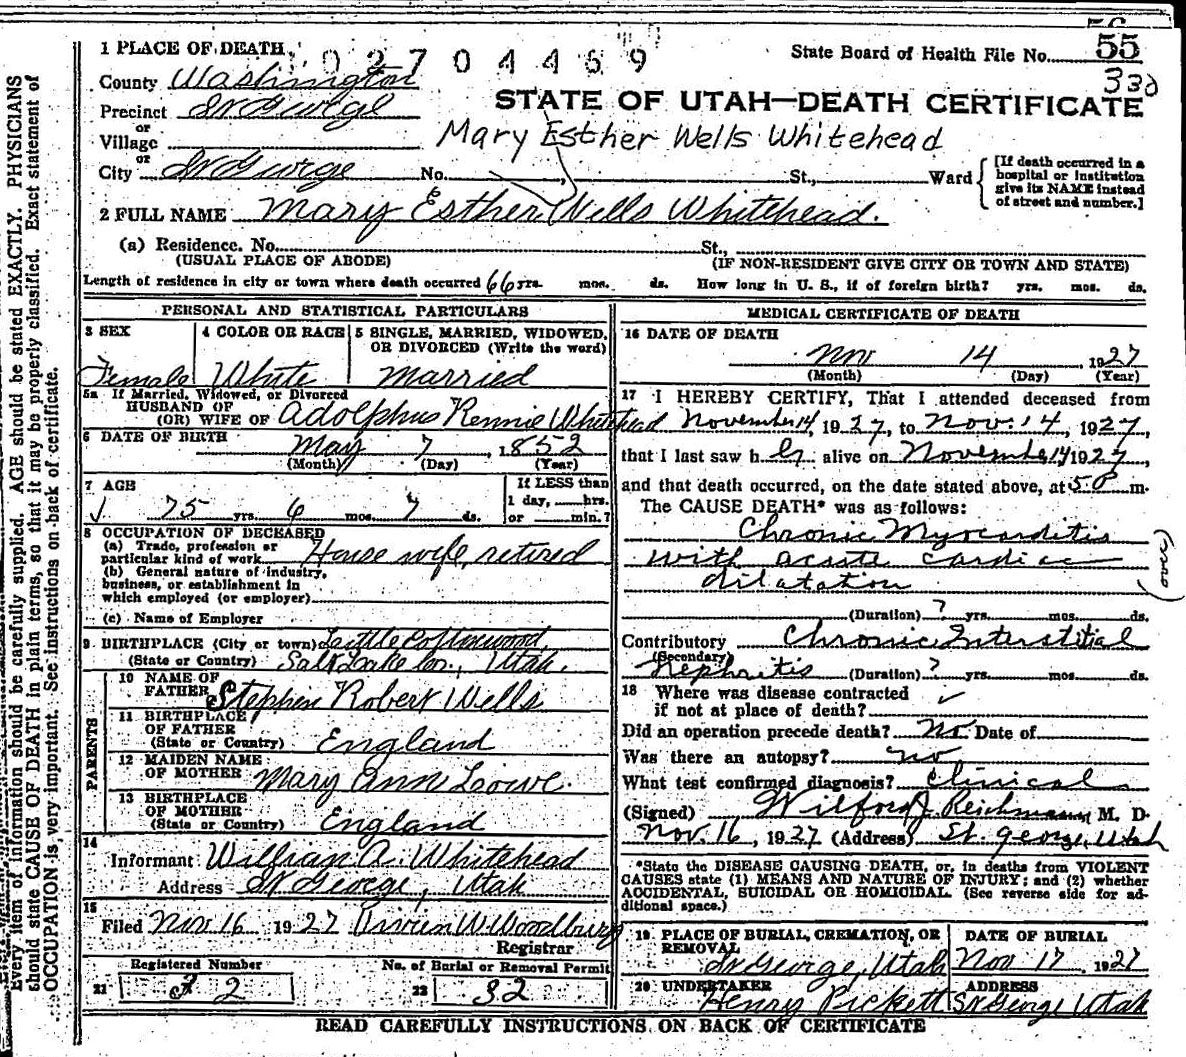 56
1 PLACE OF DEATH
02704469
State Board of Health File No. 55
330
County Washington
Precinct St George
STATE OF UTAH—DEATH CERTIFICATE
or
Village
Mary Esther Wells Whitehead
or
City St George No. , St., Ward
[If death occurred in a
hospital or institution
give its NAME instead
of street and number.]
2 FULL NAME Mary Esther Wells Whitehead.
(a) Residence. No. St.,
(USUAL PLACE OF ABODE) (IF NON-RESIDENT GIVE CITY OR TOWN AND STATE)
Length of residence in city or town where death occurred 66 yrs. mos. ds. How long in U. S., if of foreign birth? yrs. mos. ds.
PERSONAL AND STATISTICAL PARTICULARS
3 SEX 4 COLOR OR RACE 5 SINGLE, MARRIED, WIDOWED,
OR DIVORCED (Write the word)
Female White Married
5a If Married, Widowed, or Divorced
HUSBAND OF
(OR) WIFE OF Adolphus Rennie Whitehead
6 DATE OF BIRTH May 7, 1852
(Month) (Day) (Year)
7 AGE If LESS than
1 day, hrs.
75 yrs. 6 mos. 7 ds. or min.?
8 OCCUPATION OF DECEASED
(a) Trade, profession or
particular kind of work House wife, retired
(b) General nature of industry,
business, or establishment in
which employed (or employer)
(c) Name of Employer
9 BIRTHPLACE (City or town) Little Cottonwood,
(State or Country) Salt Lake Co., Utah.
PARENTS
10 NAME OF
FATHER Stephen Robert Wells
11 BIRTHPLACE
OF FATHER
(State or Country) England
12 MAIDEN NAME
OF MOTHER Mary Ann Lowe.
13 BIRTHPLACE
OF MOTHER
(State or Country) England
14
Informant William R. Whitehead
Address St George, Utah
15
Filed Nov 16 1927 Vivien W. Woodbury
Registrar
Registered Number No. of Burial or Removal Permit
21 32 22 32
MEDICAL CERTIFICATE OF DEATH
16 DATE OF DEATH
Nov 14, 1927
(Month) (Day) (Year)
17 I HEREBY CERTIFY, That I attended deceased from
November 14, 1927, to Nov. 14, 1927,
that I last saw her alive on November 14 1927,
and that death occurred, on the date stated above, at 5 P m.
The CAUSE DEATH* was as follows:
Chronic Myocarditis
with acute cardiac
dilatation
(over)
(Duration) ? yrs. mos. ds.
Contributory Chronic Interstitial
(Secondary)
Nephritis (Duration) ? yrs. mos. ds.
18 Where was disease contracted
if not at place of death?
Did an operation precede death? No Date of
Was there an autopsy? no
What test confirmed diagnosis? Clinical
(Signed) Wilford J. Reichmann, M. D.
Nov. 16, 1927 (Address) St. George, Utah
*State the DISEASE CAUSING DEATH, or, in deaths from VIOLENT
CAUSES state (1) MEANS AND NATURE OF INJURY; and (2) whether
ACCIDENTAL, SUICIDAL OR HOMICIDAL. (See reverse side for ad-
ditional space.)
19 PLACE OF BURIAL, CREMATION, OR
REMOVAL DATE OF BURIAL
St George, Utah Nov 17, 1927
20 UNDERTAKER ADDRESS
Henry Pickett St George Utah
READ CAREFULLY INSTRUCTIONS ON BACK OF CERTIFICATE
Every item of information should be carefully supplied. AGE should be stated EXACTLY. PHYSICIANS
should state CAUSE OF DEATH in plain terms, so that it may be properly classified. Exact statement of
OCCUPATION is very important. See instructions on back of certificate.